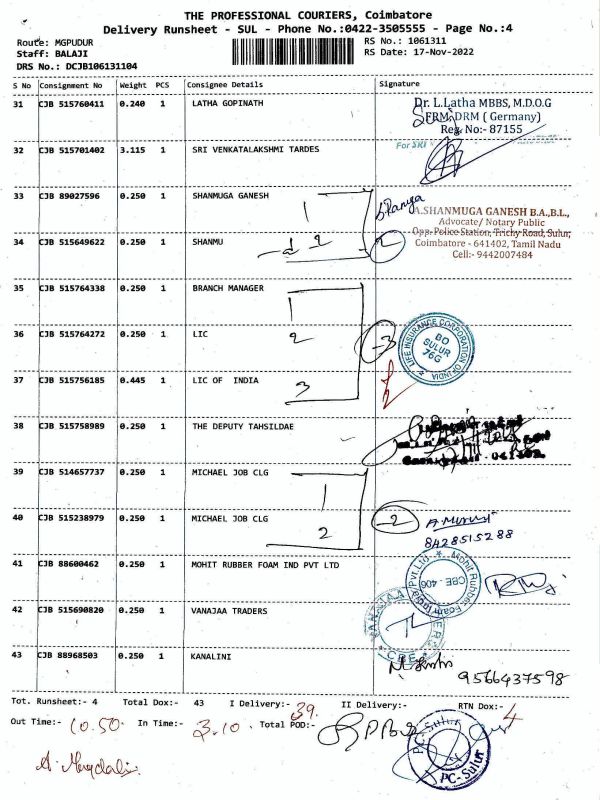 THE PROFESSIONAL COURIERS, Coimbatore
Delivery Runsheet - SUL - Phone No.:0422-3505555 - Page No.:4
Route: MGPUDUR
Staff: BALAJI
DRS No.: DCJB106131104
RS No.: 1061311
RS Date: 17-Nov-2022
S No Consignment No Weight PCS Consignee Details Signature
31 CJB 515760411 0.240 1 LATHA GOPINATH
Dr. L.Latha MBBS, M.D.O.G
FRM, DRM ( Germany)
Reg No:- 87155
32 CJB 515701402 3.115 1 SRI VENKATALAKSHMI TARDES
For SRI
33 CJB 89027596 0.250 1 SHANMUGA GANESH
1
A.SHANMUGA GANESH B.A.,B.L.,
Advocate/ Notary Public
Opp. Police Station, Trichy Road, Sulur,
Coimbatore - 641402, Tamil Nadu
Cell:- 9442007484
34 CJB 515649622 0.250 1 SHANMU
2
2
35 CJB 515764338 0.250 1 BRANCH MANAGER
1
36 CJB 515764272 0.250 1 LIC
2
3
LIFE INSURANCE CORPORATION OF INDIA
BO
SULUR
76G
37 CJB 515756185 0.445 1 LIC OF INDIA
3
38 CJB 515758989 0.250 1 THE DEPUTY TAHSILDAE
39 CJB 514657737 0.250 1 MICHAEL JOB CLG
1
40 CJB 515238979 0.250 1 MICHAEL JOB CLG
2
2
8428515288
41 CJB 88600462 0.250 1 MOHIT RUBBER FOAM IND PVT LTD
Mohit Rubber Foam India Pvt. Ltd
CBE - 406
42 CJB 515690820 0.250 1 VANAJAA TRADERS
CBE
43 CJB 88968503 0.250 1 KANALINI
9566437598
Tot. Runsheet:- 4 Total Dox:- 43 I Delivery:- 39. II Delivery:- RTN Dox:- 4
Out Time:- 10.50 In Time:- 3.10 Total POD:-
PC-Sulur
PC-Sulur